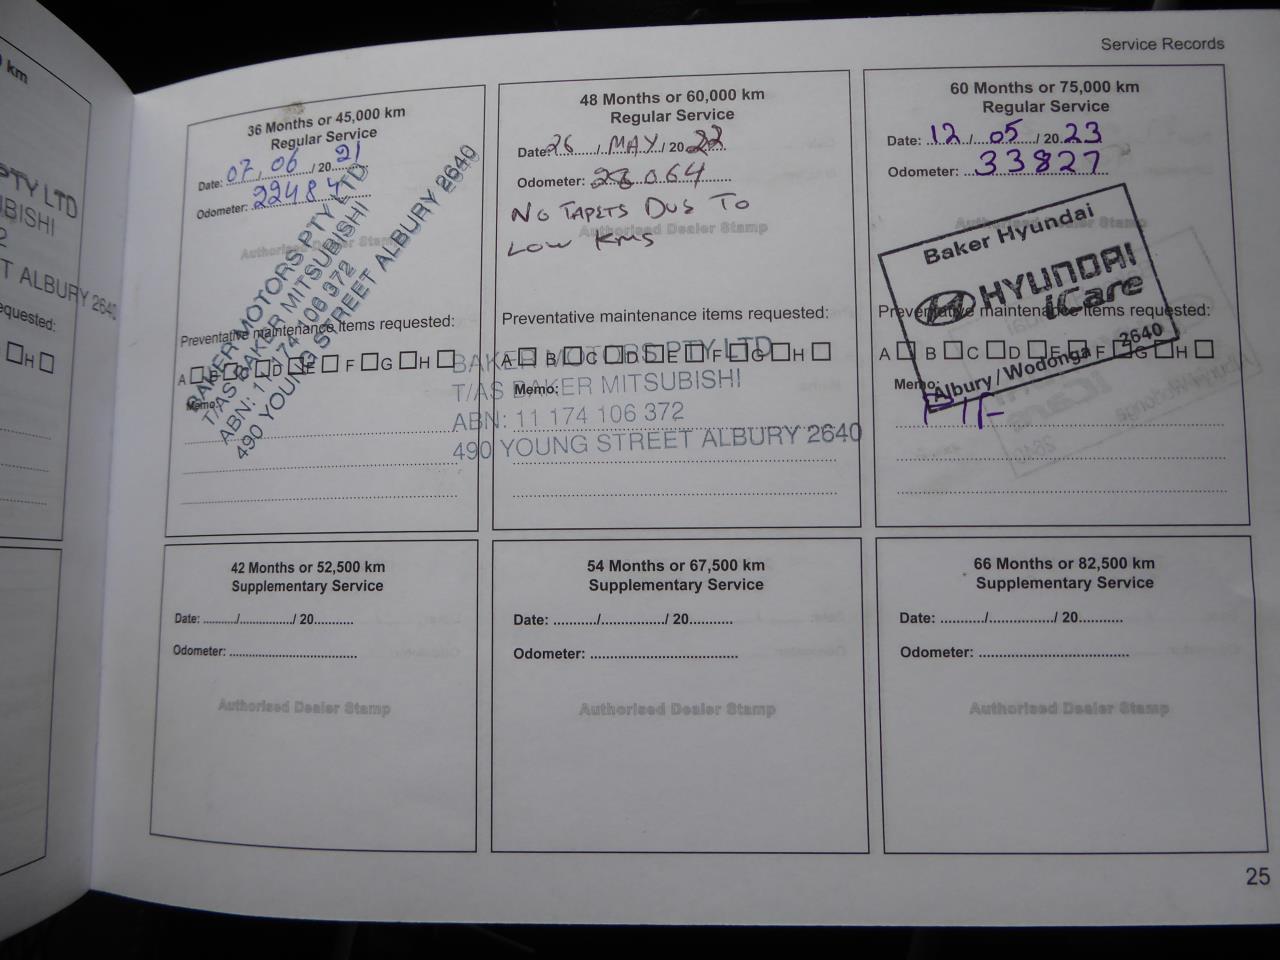 Service Records
km
PTY LTD
T ALBURY 2640
equested:
H
36 Months or 45,000 km
Regular Service
Date: 07 / 06 / 20 21
Odometer: 22484
Authorised Dealer Stamp
BAKER MOTORS PTY LTD
T/AS BAKER MITSUBISHI
ABN: 11 174 106 372
490 YOUNG STREET ALBURY 2640
Preventative maintenance items requested:
A B C D E F G H
Memo:
48 Months or 60,000 km
Regular Service
Date: 26 / MAY / 20 22
Odometer: 28064
NO TAPETS DUE TO
LOW KMS
Authorised Dealer Stamp
Preventative maintenance items requested:
A B C D E F G H
BAKER MOTORS PTY LTD
T/AS BAKER MITSUBISHI
Memo:
ABN: 11 174 106 372
490 YOUNG STREET ALBURY 2640
60 Months or 75,000 km
Regular Service
Date: 12 / 05 / 20 23
Odometer: 33827
Authorised Dealer Stamp
Baker Hyundai
HYUNDAI
iCare
Albury/Wodonga 2640
Preventative maintenance items requested:
A B C D E F G H
Memo:
42 Months or 52,500 km
Supplementary Service
Date: ........../................/ 20..........
Odometer: ..................................
Authorised Dealer Stamp
54 Months or 67,500 km
Supplementary Service
Date: .........../................./ 20...........
Odometer: ......................................
Authorised Dealer Stamp
66 Months or 82,500 km
Supplementary Service
Date: .........../................./ 20...........
Odometer: ......................................
Authorised Dealer Stamp
25